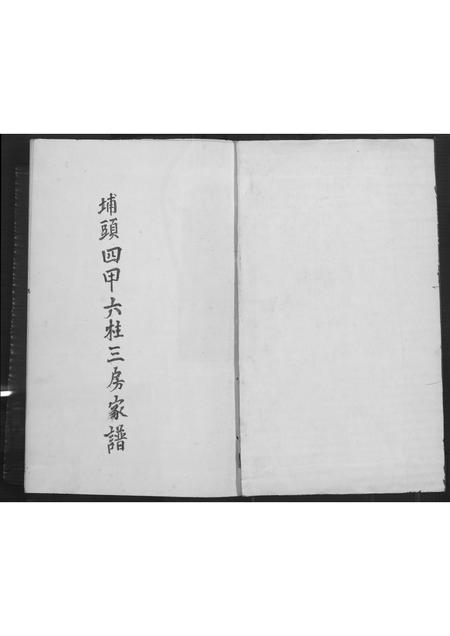 埔頭四甲六柱三房家譜